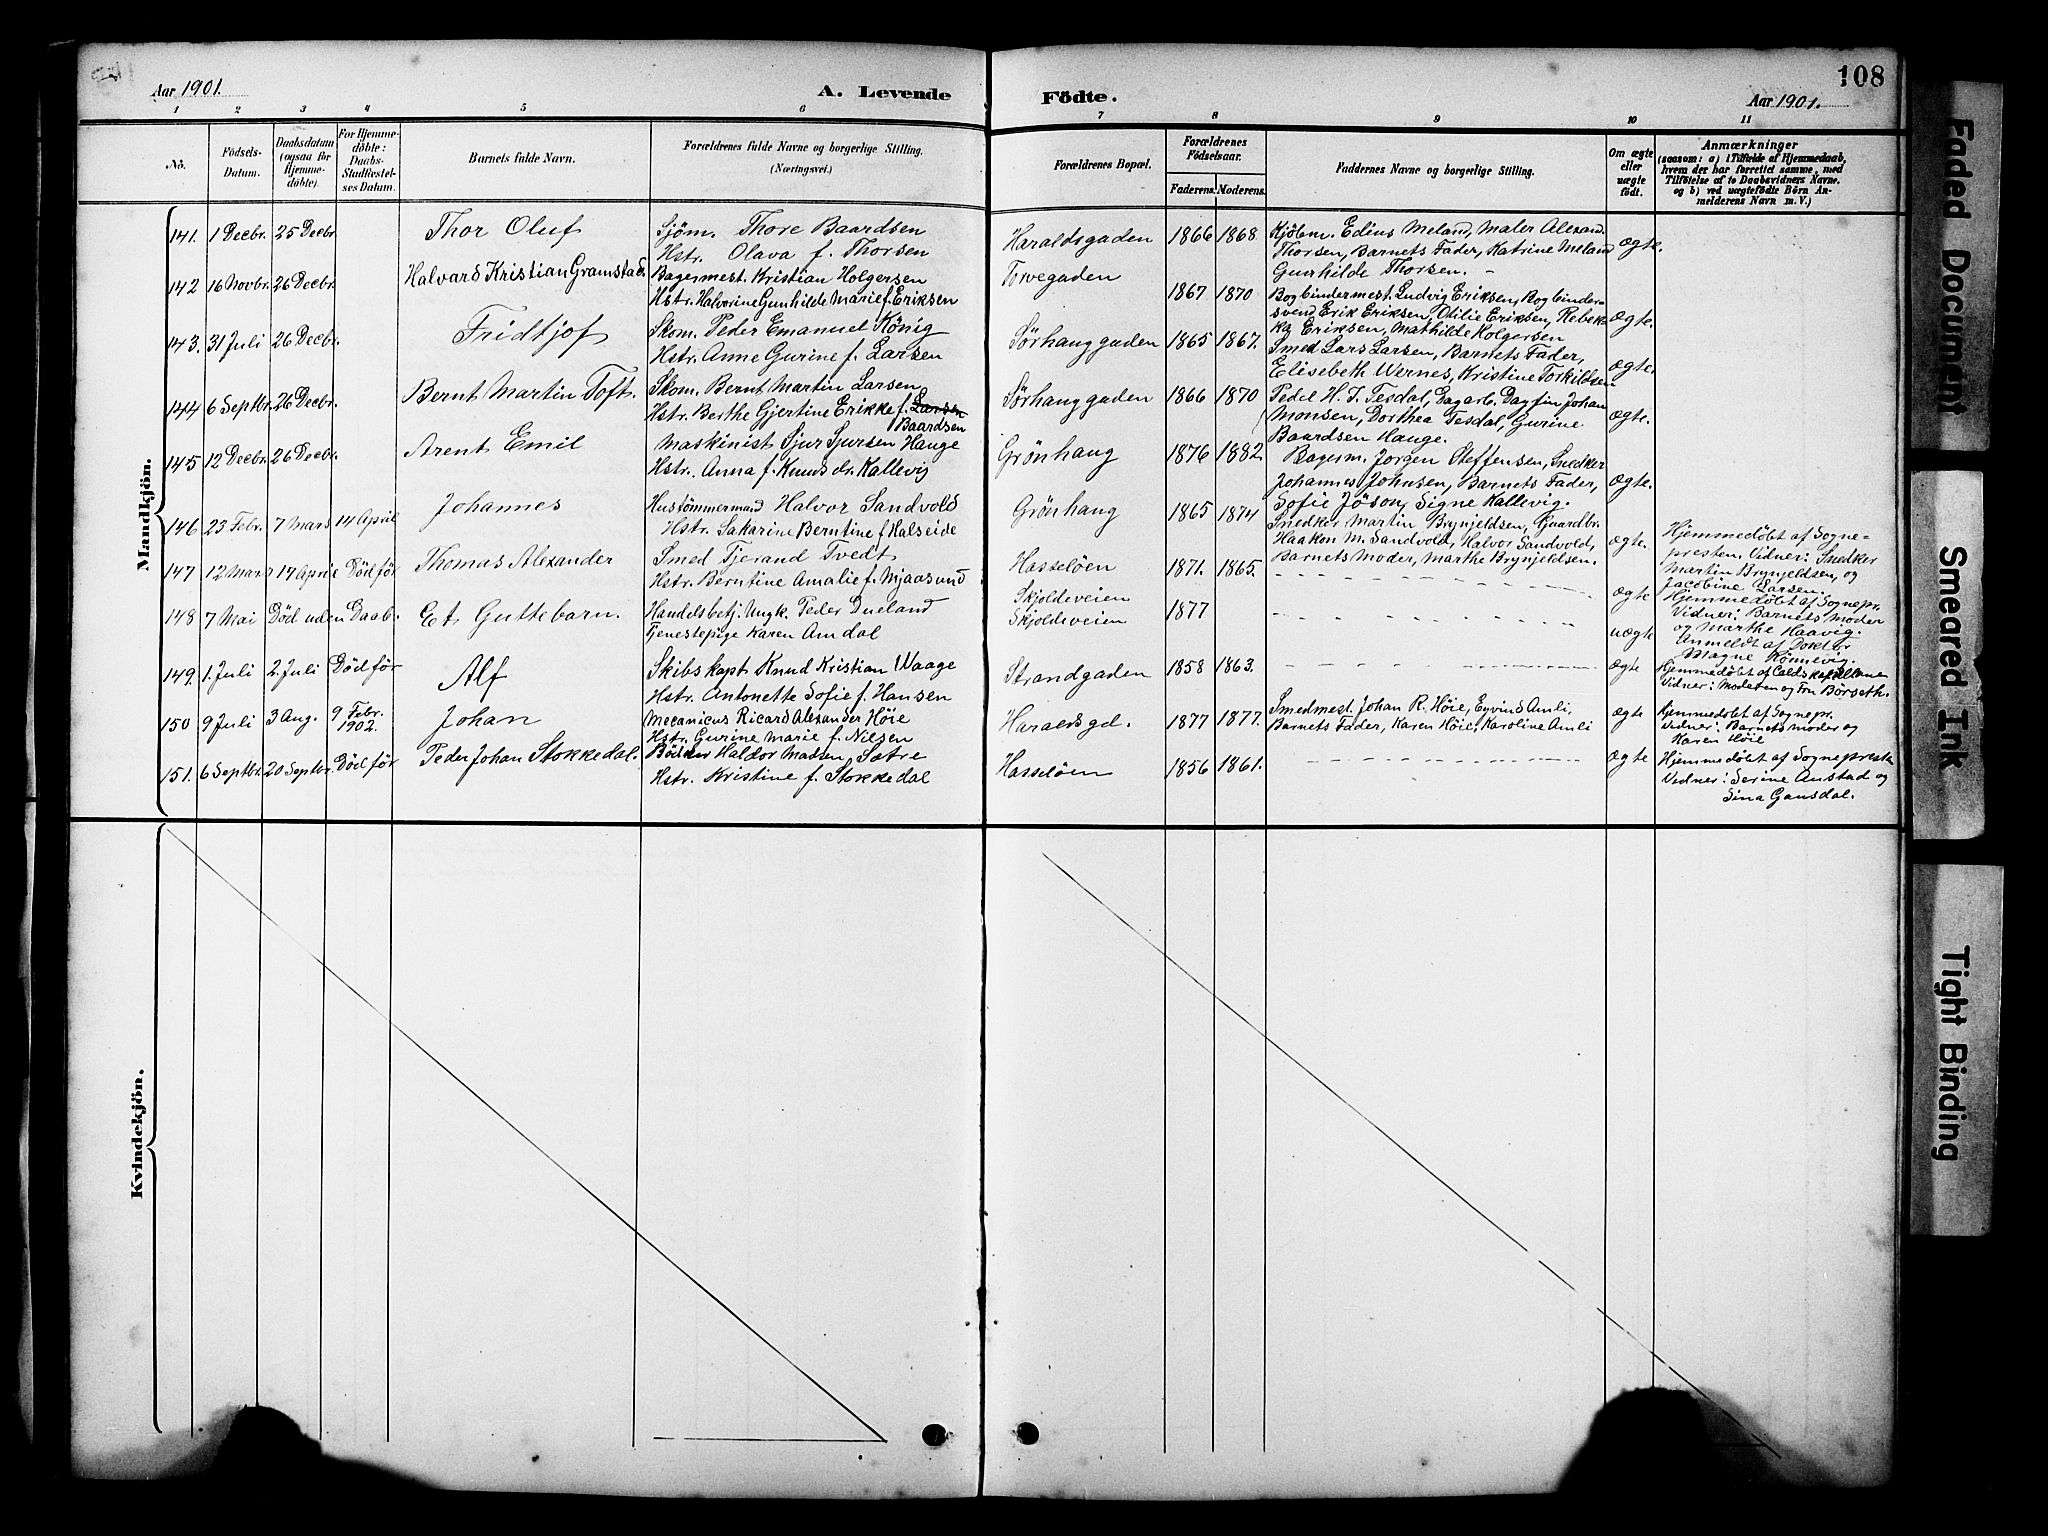 Aar 1901.
A. Levende
Födte.
108
Aar 1901.
1 2 3 4 5 6 7 8 9 10 11
No.
Födsels-
Datum.
Daabsdatum
(ogsaa for
Hjemme-
döbte).
For Hjemme-
döbte:
Daabs-
Stadfæstel-
ses Datum.
Barnets fulde Navn.
Forældrenes fulde Navne og borgerlige Stilling.
(Næringsvei.)
Forældrenes Bopæl.
Forældrenes
Födselsaar.
Faderens. Moderens.
Faddernes Navne og borgerlige Stilling.
Om ægte
eller
uægte
födt.
Anmærkninger
(saasom: a) i Tilfælde af Hjemmedaab,
hvem der har forrettet samme, med
Tilföielse af to Daabsvidners Navne.
og b) ved uægtefödte Börn An-
melderens Navn m. V.)
Mandkjön.
141. 1 Decbr. 25 Decbr. Thor Oluf
Sjöm. Thore Baardsen
Hstr. Olava f. Thorsen
Haraldsgaden 1866 1868
Kjöbm. Edius Meland, Maler Alexand.
Thorsen, Barnets Fader, Katrine Meland
Gunhilde Thorsen. -
ægte.
142 16 Novbr. 26 Decbr. Halvard Kristian Gramstad.
Bagermest. Kristian Holgersen
Hstr. Halvorine Gunhilde Marie f. Eriksen
Torvegaden 1867 1870
Bogbindermest. Ludvig Eriksen, Bogbinder-
svend Erik Eriksen, Otilie Eriksen, Rebek-
ka Eriksen, Mathilde Holgersen
ægte.
143. 31 Juli 26 Decbr. Fridtjof
Skom. Peder Emanuel König
Hstr. Anne Gurine f. Larsen
Sørhauggaden 1865 1867.
Smed Lars Larsen, Barnets Fader,
Elisebeth Wernes, Kristine Torkildsen
ægte.
144 6 Septbr. 26 Decbr. Bernt Martin Toft.
Skom. Bernt Martin Larsen
Hstr. Berthe Gjertine Erikke f. Larsen
Baardsen
Sørhauggaden 1866 1870
Pedel H. J. Tesdal, Dagarb. Dagfin Johan
Monsen, Dorthea Tesdal, Gurine
Baardsen Hauge.
ægte.
145 12 Decbr. 26 Decbr. Arent Emil
Maskinist Sjur Sjursen Hauge
Hstr. Anna f. Knuds dr. Kallevig
Grönhaug 1876 1882
Bagerm. Jörgen Steffensen, Snedker
Johannes Johnsen, Barnets Fader,
Sofie Jöson, Signe Kallevig.
ægte.
146 23 Febr. 7 Mars 14 April Johannes
Hustömmermand Halvor Sandvold
Hstr. Sakarine Berntine f. Halseide
Grönhaug 1865 1874
Snedker Martin Brynjeldsen, Guardbr.
Haakon M. Sandvold, Halvor Sandvold,
Barnets Moder, Marthe Brynjeldsen.
ægte.
Hjemmedöbt af Sogne-
presten. Vidner: Snedker
Martin Brynjeldsen, og
Jacobine Larsen.
147 12 Mars 17 April Död før Thomas Alexander
Smed Tjerand Tvedt
Hstr. Berntine Amalie f. Mjaasund
Hasselöen 1871. 1865.
ægte
Hjemmedöbt af Sognepr.
Vidner: Barnets Moder
og Marthe Haavig.
148 7 Mai Död uden Daab. Et Guttebarn.
Handelsbetj. Ungk. Peder Dueland
Tjenestepige Karen Amdal
Skjoldeveien
Skjoldeveien 1877
uægte
Anmeldt af Doktor
Magne Könnevig.
149. 1. Juli 2. Juli Död før Alf
Skibskapt. Knud Kristian Waage
Hstr. Antonette Sofie f. Hansen
Strandgaden 1858 1863.
ægte
Hjemmedöbt af Caldskapellanen
Vidner: Moderen og Fru Börseth.
150 9 Juli 3 Aug. 9 Febr.
1902. Johan
Mecanicus Ricard Alexander Höie
Hstr. Gurine Marie f. Nilsen
Haralds gd. 1877 1877.
Smedmest. Johan R. Höie, Eyvind Amli,
Barnets Fader, Karen Höie, Karoline Amli
ægte
Hjemmedöbt af Sognepr.
Vidner: Barnets Moder og
Karen Höie
151. 6 Septbr. 20 Septbr. Död før Peder Johan Stokkedal.
Bödker Haldor Madsen Sætre
Hstr. Kristine f. Stokkedal
Hasselöen 1856 1861.
ægte
Hjemmedöbt af Sognepresten
Vidner: Serine Anstad og
Sina Gausdal.
Kvindekjön.
Faded Document
Smeared Ink
Tight Binding